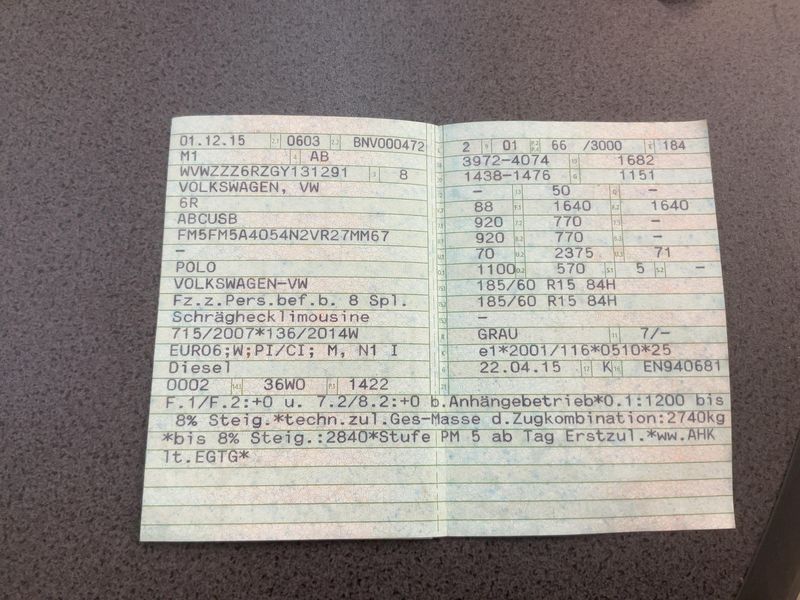 01.12.15 0603 BNV000472
M1 AB
WVWZZZ6RZGY131291 8
VOLKSWAGEN, VW
6R
ABCUSB
FM5FM5A4054N2VR27MM67
–
POLO
VOLKSWAGEN-VW
Fz.z.Pers.bef.b. 8 Spl.
Schräghecklimousine
715/2007*136/2014W
EURO6;W;PI/CI; M, N1 I
Diesel
0002 36W0 1422
2 01 66 /3000 184
3972-4074 1682
1438-1476 1151
– 50 –
88 1640 1640
920 770 –
920 770 –
70 2375 71
1100 570 5 –
185/60 R15 84H
185/60 R15 84H
–
GRAU 7/–
e1*2001/116*0510*25
22.04.15 K EN940681
F.1/F.2:+0 u. 7.2/8.2:+0 b.Anhängebetrieb*0.1:1200 bis
8% Steig.*techn.zul.Ges-Masse d.Zugkombination:2740kg
*bis 8% Steig.:2840*Stufe PM 5 ab Tag Erstzul.*ww.AHK
lt.EGTG*